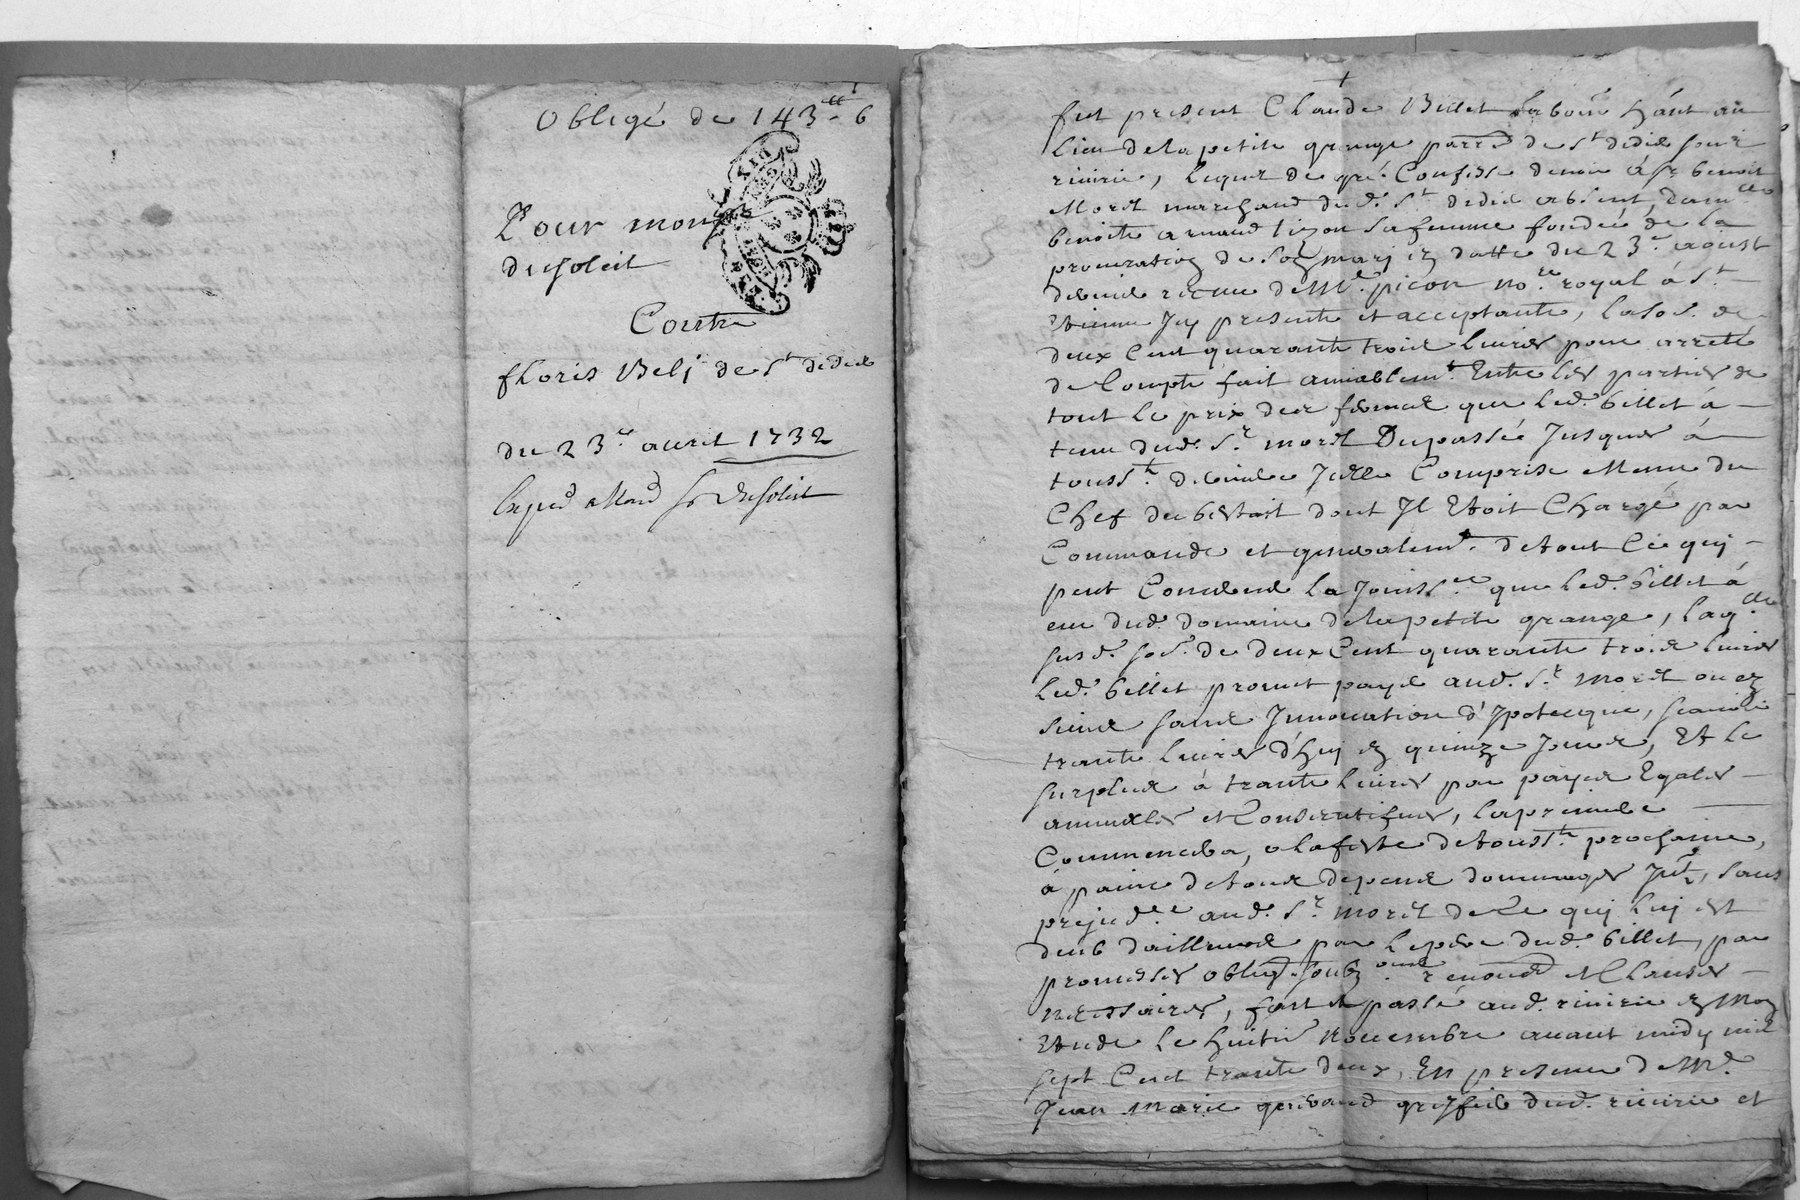 Obligé de 143ᵗᵗ 6
Pour monsr
dusoleil
Contre
floris Belj de St didier
du 23e avril 1732
dusoleil
fut present Claude Billet labour hant au
lieu de la petite grange parre de St didier sous
riuirie, lequel de gré Confesse deuoir à sr benoit
Morel marchand dud. St didier absent, damlle
benoite arnaud lizon sa femme fondée de la
procuration de son mary en datte du 23e aoust
dernier recuue de Me picon nore royal à St
Etienne Icy presente et acceptante, la so.e de
deux Cent quarante trois liures pour arretté
de Compte fait amiablemt Entre les parties de
tout le prix des fermes que led. billet à
tenu dud. Sr morel Du passé Jusques à
tousst derniere Icelle Comprise Meme du
Chef du bestail dont Il Etoit Chargé par
Commande et generalemt de tout Ce quj
peut Concerner la Jouisse que led. billet à
eu dud. domaine de la petite grange, laqlle
susd. so.e de deux Cent quarante trois liures
led. billet promet payer aud. Sr morel ou es
siens sans Innouation d'Ipotecque, scauoir
trante liures d'huy en quinze Jours, Et le
surplus à trante liures par payes Egales
annuelles et Consecutifues, la premiere
Commencera, a la feste de tousst prochaine,
à paine de tous depens dommages Intz, sans
prejudce aud. Sr morel de Ce quj luj est
deub d'ailleurs par le pere dud. billet, par
promesses oblig. soubz renond et Clauses
necessaires, fait et passé aud. riuirie en mon
Etude le huitie Nouembre auant midy mil
sept Cent trante deux, En presence de Me
Jean Marie greffier dud. riuirie et